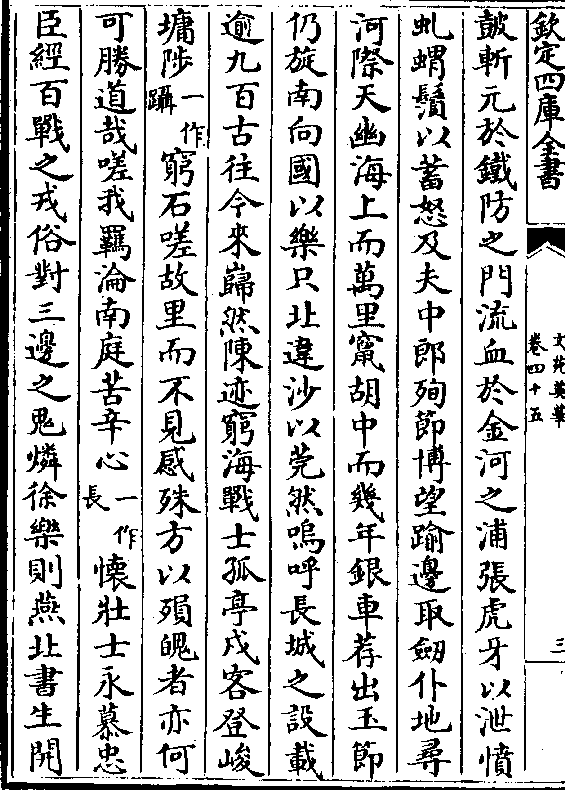 欽定四庫全書
文苑英華
卷四十五
三
皷斬元於鐵防之門流血於金河之浦張虎牙以泄憤
虬蝟鬚以蓄怒及夫中郎殉節博望踰邊取劒仆地尋
河際天幽海上而萬里竄胡中而幾年銀車荐出玉節
仍旋南向國以樂只北違沙以莞然嗚呼長城之設載
逾九百古往今來巋然陳迹窮海戰士孤亭戍客登峻
墉陟一作躡窮石嗟故里而不見感殊方以殞魄者亦何
可勝道哉嗟我羈淪南庭苦辛心一作長懐壯士永慕忠
臣經百戰之戎俗對三邊之鬼燐徐樂則燕北書生開